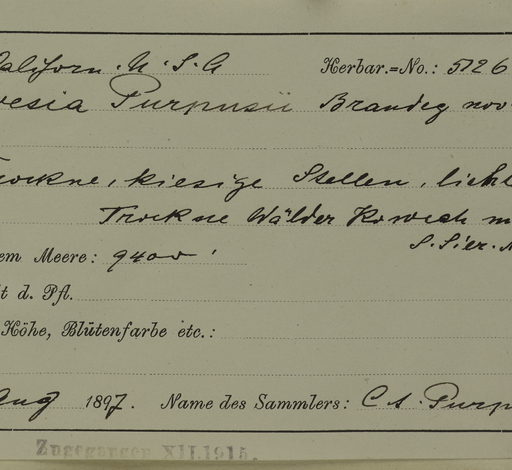 Californ. U. S. A Herbar.=No.: 5126
vesia Purpusii Brandeg nov
trockne, kiesige Stellen, licht
Trockne Wälder Kowech m
S. Sier. N
em Meere: 9400'
t d. Pfl.
Höhe, Blütenfarbe etc.:
Aug 1897. Name des Sammlers: C A. Purp
Zugegangen XII.1915.